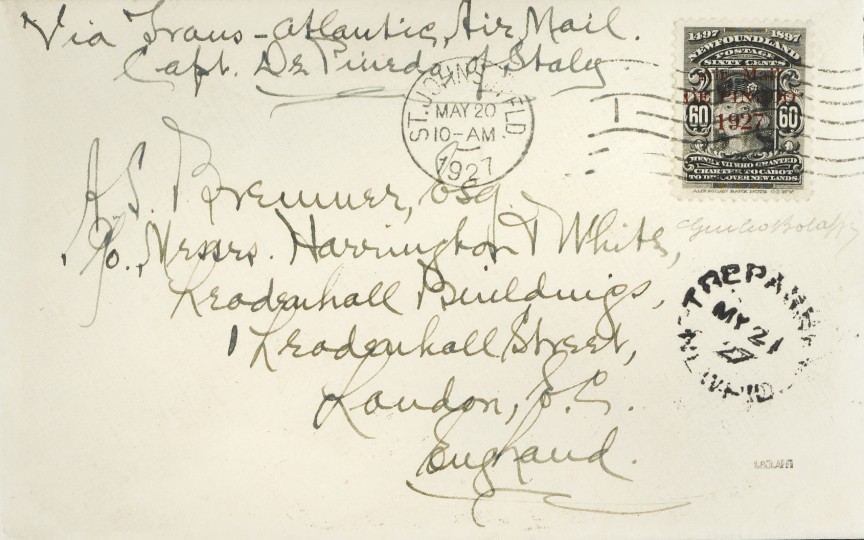 Via Trans-atlantic, Air Mail.
Capt. De Pinedo of Italy
ST. JOHN'S NFLD.
MAY 20
10-AM
1927
1497 1897
NEWFOUNDLAND
POSTAGE
SIXTY CENTS
Air Mail
DE PINEDO
1927
60 60
HENRY VII WHO GRANTED
CHARTER TO CABOT
TO DISCOVER NEW LANDS
A. S. Bremner, Esq.
c/o. Messrs. Harrington & White,
Leadenhall Buildings,
1 Leadenhall Street,
London, E.C.
England.
TREPASSEY
MY 21
27
NEWF'D